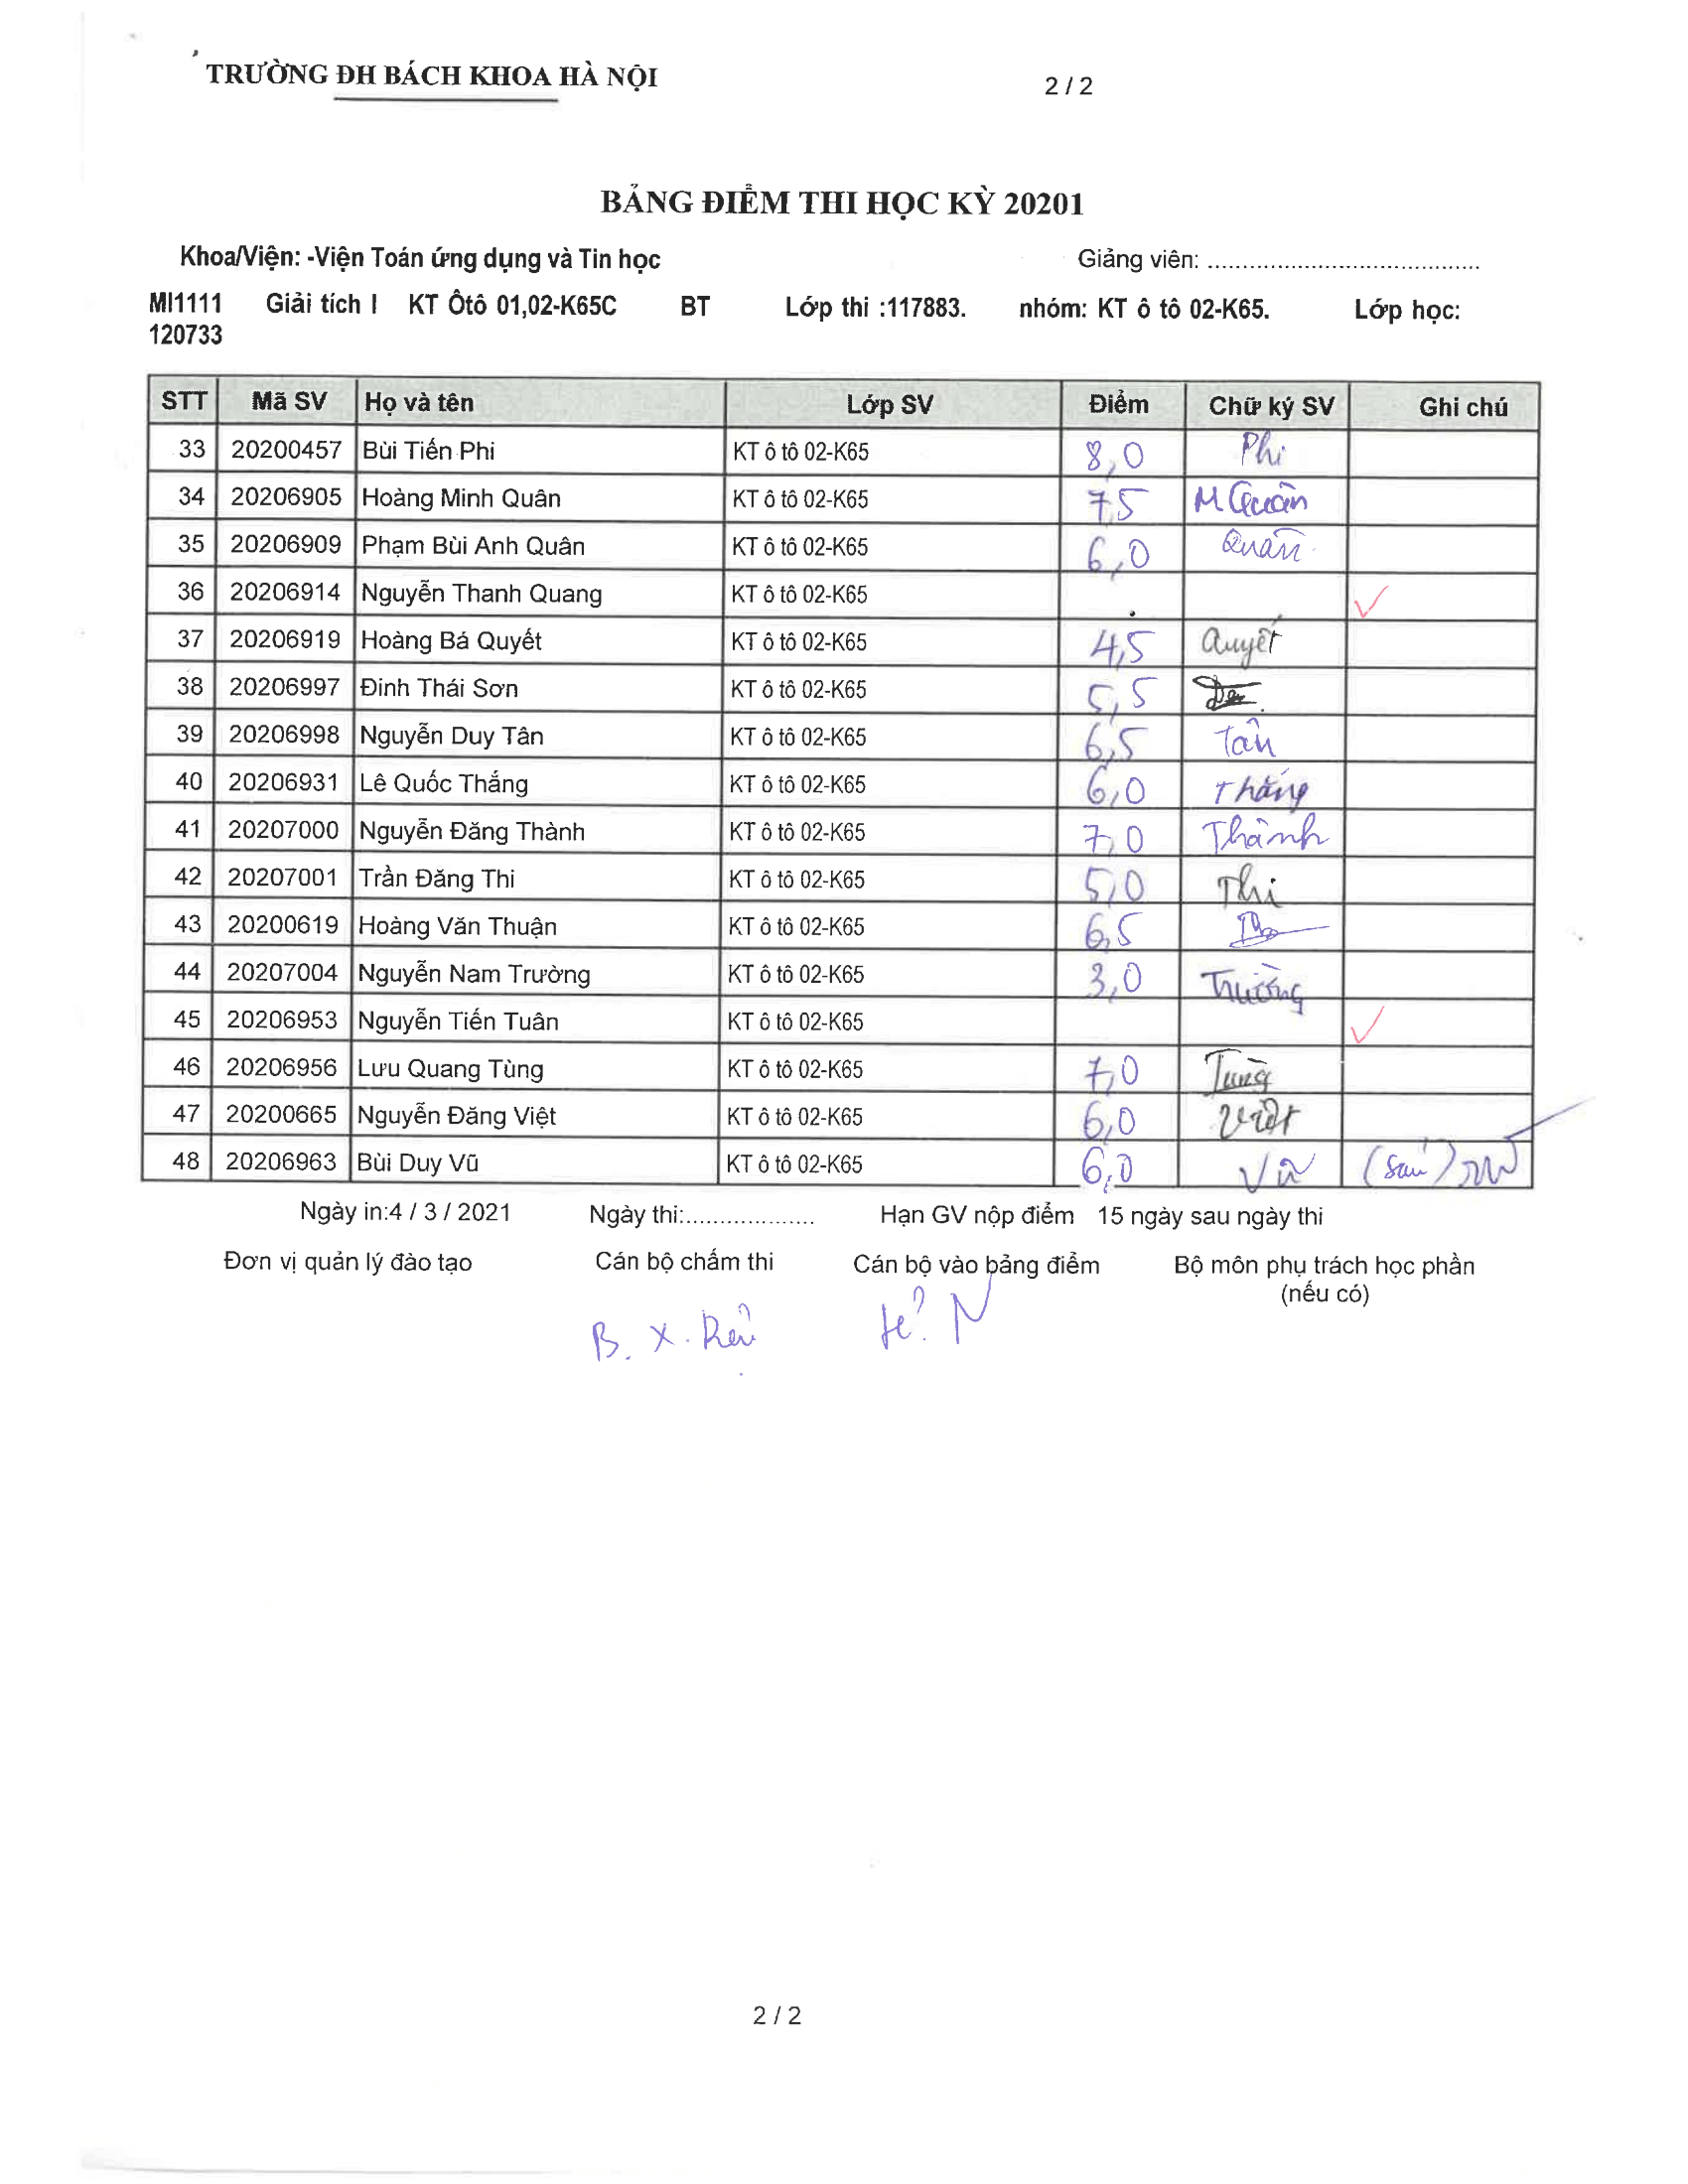 TRƯỜNG ĐH BÁCH KHOA HÀ NỘI
2 / 2
BẢNG ĐIỂM THI HỌC KỲ 20201
Khoa/Viện: -Viện Toán ứng dụng và Tin học Giảng viên: .......................................
MI1111 Giải tích I KT Ôtô 01,02-K65C BT Lớp thi :117883. nhóm: KT ô tô 02-K65. Lớp học:
120733
STT Mã SV Họ và tên Lớp SV Điểm Chữ ký SV Ghi chú
33 20200457 Bùi Tiến Phi KT ô tô 02-K65 8,0 Phi
34 20206905 Hoàng Minh Quân KT ô tô 02-K65 7,5 M Quân
35 20206909 Phạm Bùi Anh Quân KT ô tô 02-K65 6,0 Quân
36 20206914 Nguyễn Thanh Quang KT ô tô 02-K65 ✓
37 20206919 Hoàng Bá Quyết KT ô tô 02-K65 4,5 Quyết
38 20206997 Đinh Thái Sơn KT ô tô 02-K65 5,5
39 20206998 Nguyễn Duy Tân KT ô tô 02-K65 6,5 Tân
40 20206931 Lê Quốc Thắng KT ô tô 02-K65 6,0 Thắng
41 20207000 Nguyễn Đăng Thành KT ô tô 02-K65 7,0 Thành
42 20207001 Trần Đăng Thi KT ô tô 02-K65 5,0 Thi
43 20200619 Hoàng Văn Thuận KT ô tô 02-K65 6,5
44 20207004 Nguyễn Nam Trường KT ô tô 02-K65 3,0 Trường
45 20206953 Nguyễn Tiến Tuân KT ô tô 02-K65 ✓
46 20206956 Lưu Quang Tùng KT ô tô 02-K65 7,0 Tùng
47 20200665 Nguyễn Đăng Việt KT ô tô 02-K65 6,0 Việt
48 20206963 Bùi Duy Vũ KT ô tô 02-K65 6,0 Vũ
Ngày in:4 / 3 / 2021 Ngày thi:................... Hạn GV nộp điểm 15 ngày sau ngày thi
Đơn vị quản lý đào tạo Cán bộ chấm thi Cán bộ vào bảng điểm Bộ môn phụ trách học phần
(nếu có)
B. X.
2 / 2